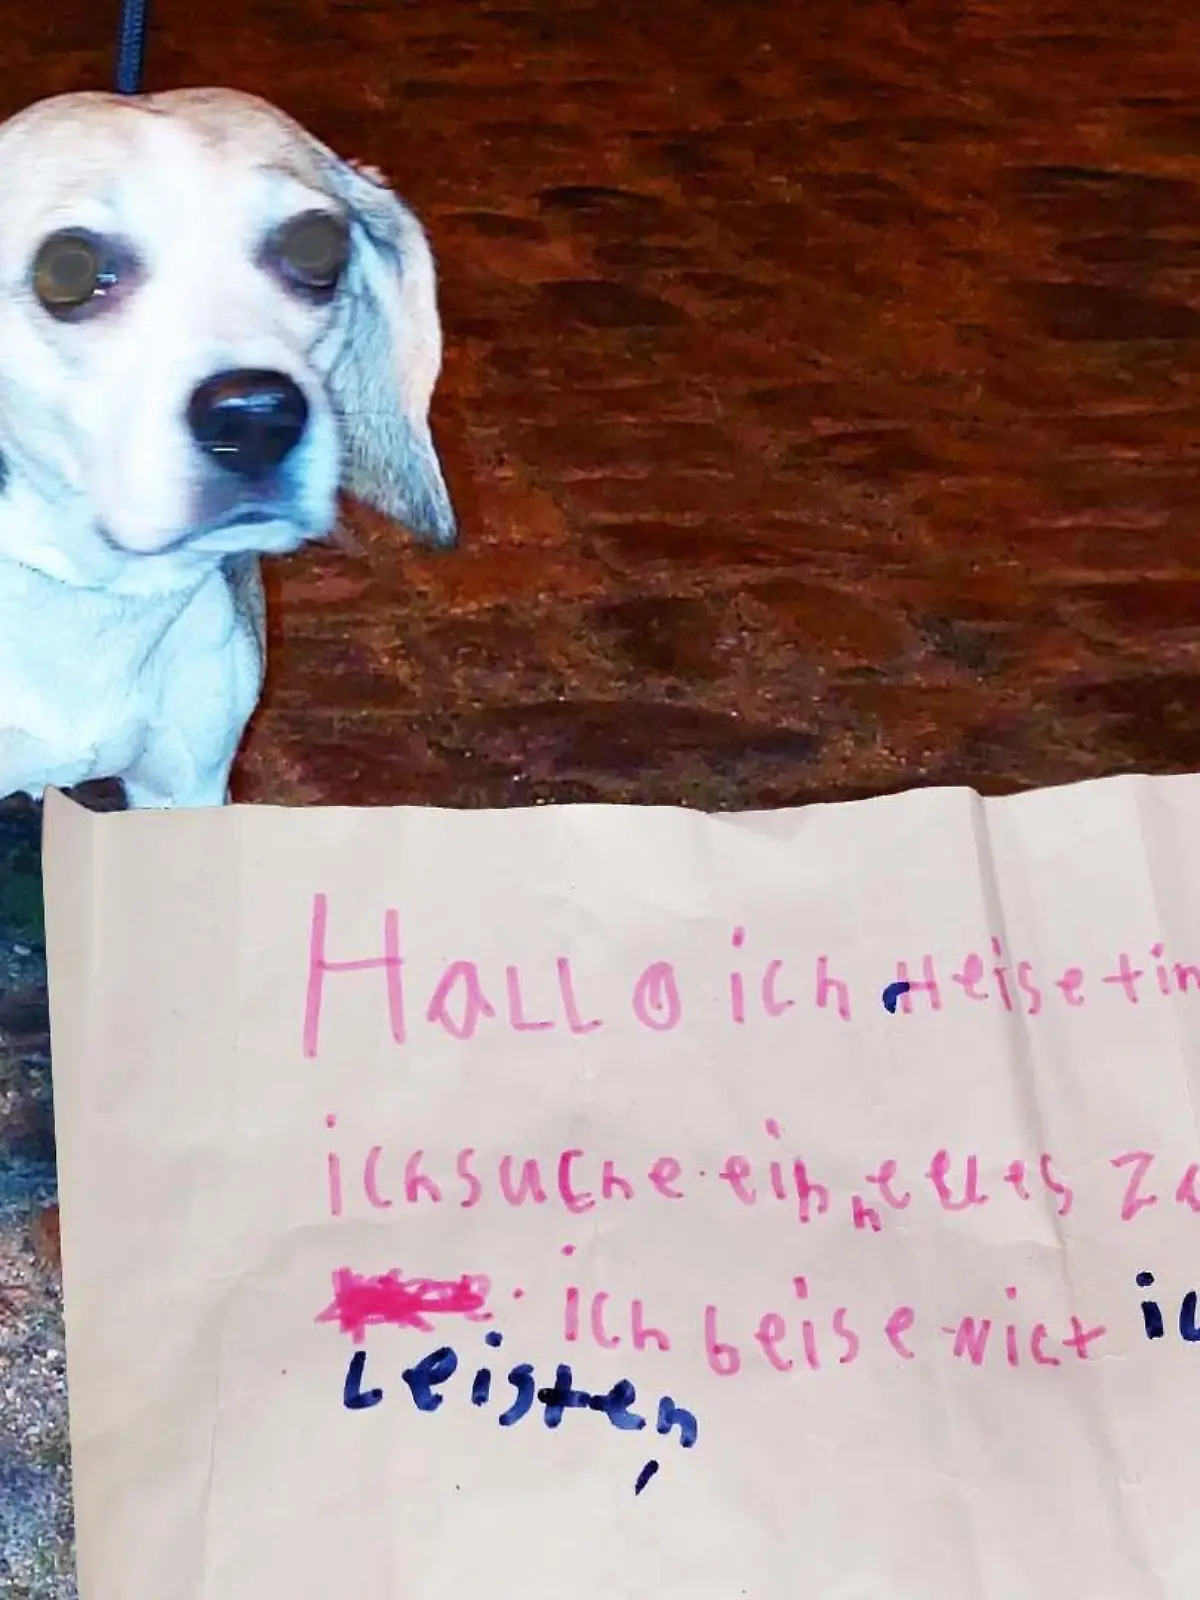 Hallo ich Heise tin
ich suche ein neues Zu
ich beise nict ic
Leisten,